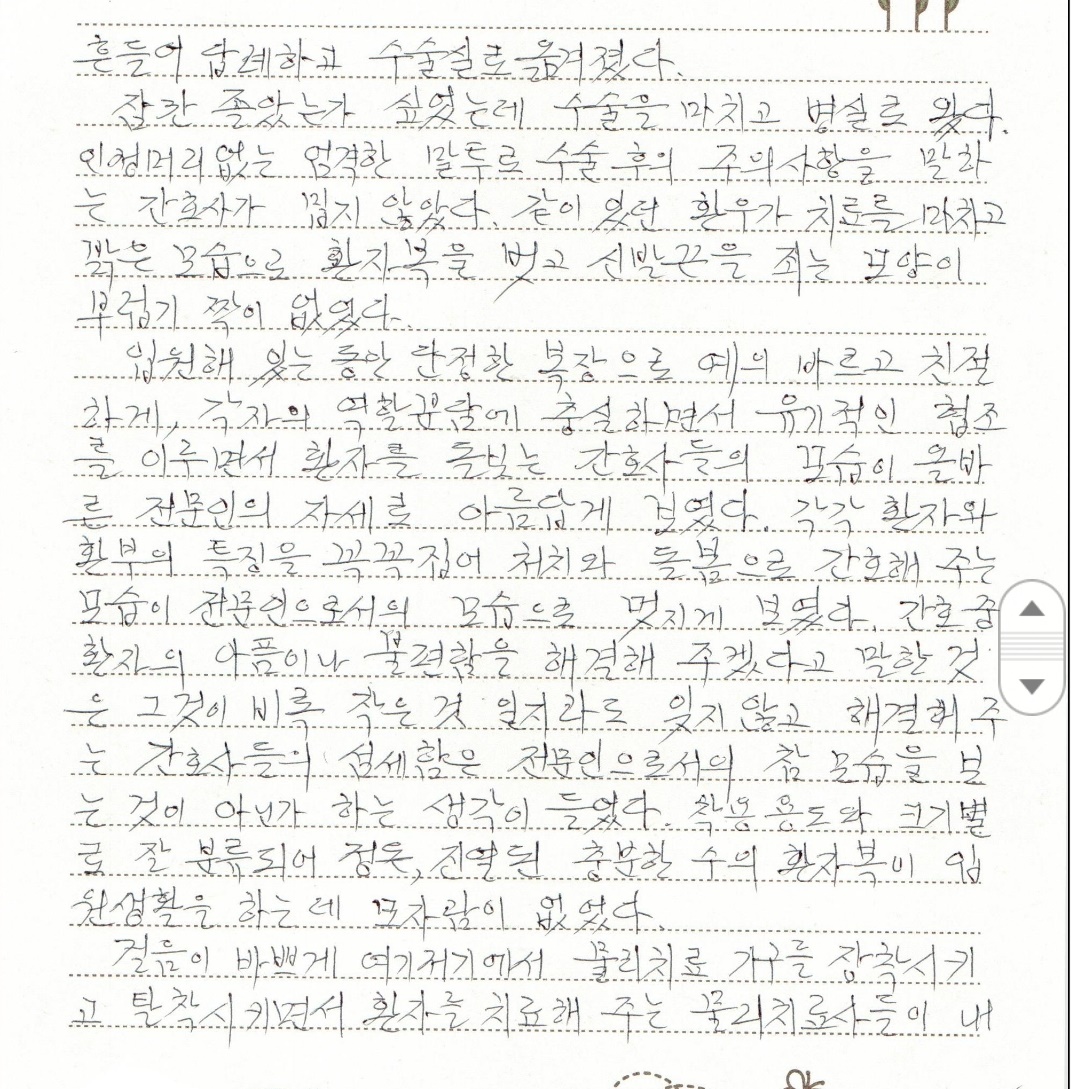 흔들어 답례하고 수술실로 옮겨졌다.
잠깐 졸았는가 싶었는데 수술을 마치고 병실로 왔다.
인정머리없는 엄격한 말투로 수술 후의 주의사항을 말하
는 간호사가 밉지 않았다. 같이 있던 환우가 치료를 마치고
밝은 모습으로 환자복을 벗고 신발끈을 죄는 모양이
부럽기 짝이 없었다.
입원해 있는 동안 단정한 복장으로 예의 바르고 친절
하게, 각자의 역할분담에 충실하면서 유기적인 협조
를 이루면서 환자를 돌보는 간호사들의 모습이 올바
른 전문인의 자세로 아름답게 보였다. 각각 환자와
환부의 특징을 꼭꼭집어 처치와 돌봄으로 간호해 주는
모습이 전문인으로서의 모습으로 멋지게 보였다. 간호중
환자의 아픔이나 불편함을 해결해 주겠다고 말한 것
은 그것이 비록 작은 것 일지라도 잊지 않고 해결해 주
는 간호사들의 섬세함은 전문인으로서의 참 모습을 보
는 것이 아닌가 하는 생각이 들었다. 착용 용도와 크기별
로 잘 분류되어 정돈, 진열된 충분한 수의 환자복이 입
원생활을 하는데 모자람이 없었다.
걸음이 바쁘게 여기저기에서 물리치료 기구를 장착시키
고 탈착시키면서 환자를 치료해 주는 물리치료사들이 내